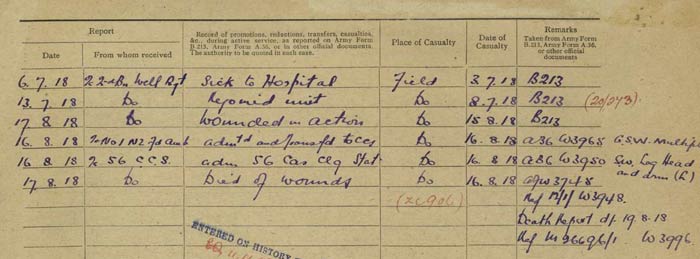 Report
Record of promotions, reductions, transfers, casualties,
&c., during active service, as reported on Army Form
B.213, Army Form A.36, or in other official documents.
The authority to be quoted in each case.
Place of Casualty
Date of
Casualty
Remarks
Taken from Army Form
B.213, Army Form A.36,
or other official
documents
Date
From whom received
6.7.18 2nd Bn Well Rgt Sick to Hospital Field 3.7.18 B213
13.7.18 Do Rejoined unit Do 8.7.18 B213 (20/273)
17 8.18 Do Wounded in action Do 15.8.18 B213
16.8.18 No 1 NZ Fd Amb admtd and transfd to CCS Do 16.8.18 A36 W3965 G.S.W. Multiple
16 8.18 56 C.C.S. adm 56 Cas Clg Stat Do 16.8.18 A36 W3950 Gsw Leg Head
and arm (L)
17.8.18 Do Died of wounds Do 16.8.18 W3748
Ref W3948.
Death Report dt. 19.8.18
Ref M26696/1 W3996.
ENTERED ON HISTORY